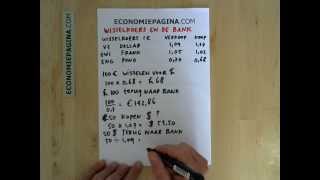 ECONOMIEPAGINA.COM
ECONOMIEPAGINA.COM
WISSELKOERS EN DE BANK
WISSELKOERS 1 € VERKOOP KOOP
VS DOLLAR 1,09
ZWI FRANK 1,05 1,02
ENG POND 0,70 0,68
100 € WISSELEN VOOR £
100 x 0,68 = £ 68
£ 100 TERUG NAAR BANK
100
0,7 = € 142,86
€ 50 KOPEN $ ?
50 x 1,07 = $ 53,50
50 $ TERUG NAAR BANK
50 ÷ 1,09 =